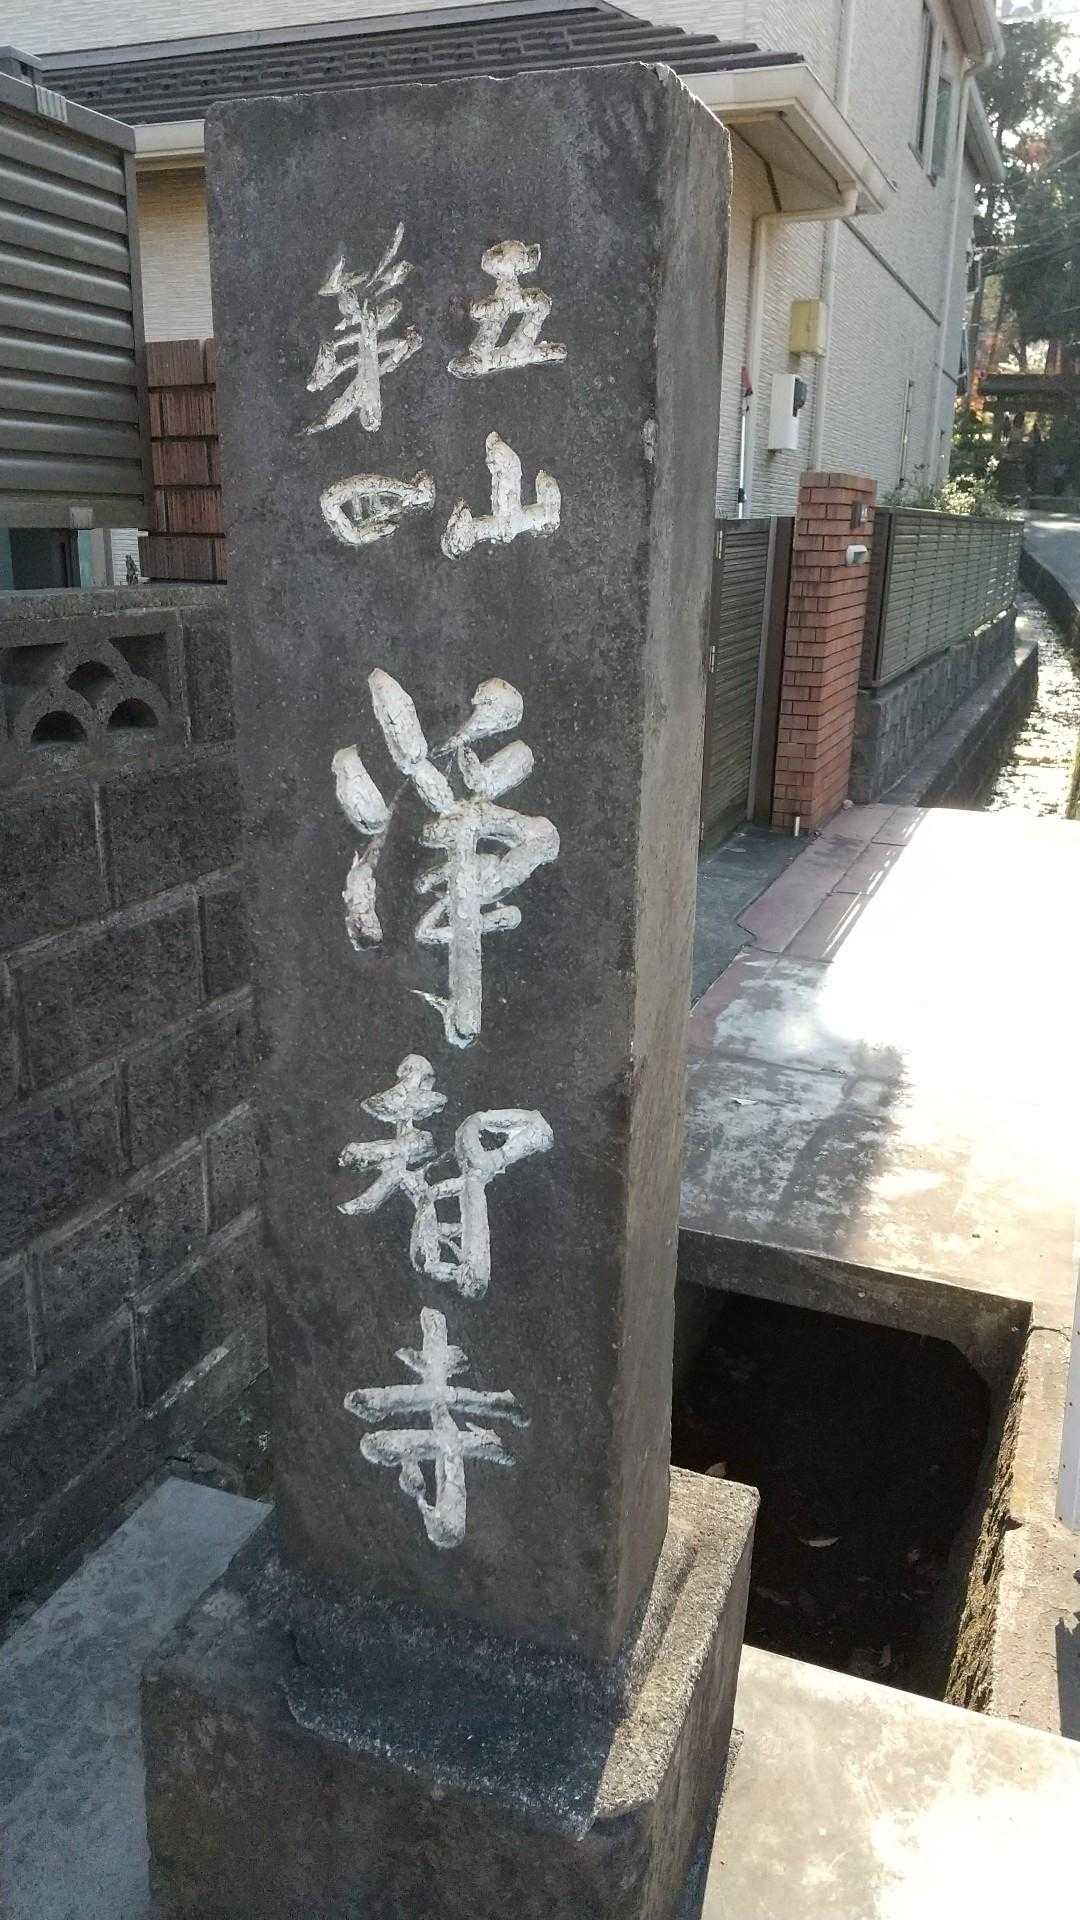 五山
第四
浄智寺